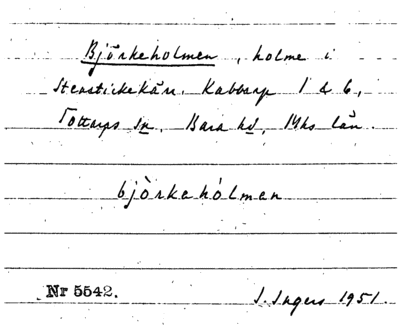 Björkeholmen, holme i
Stenstickekärr. Kabbarp 1 & 6,
Tottarps sn. Bara hd, Mhs län.
bjὸrkehólmen
Nr 5542.
I. Ingers 1951.